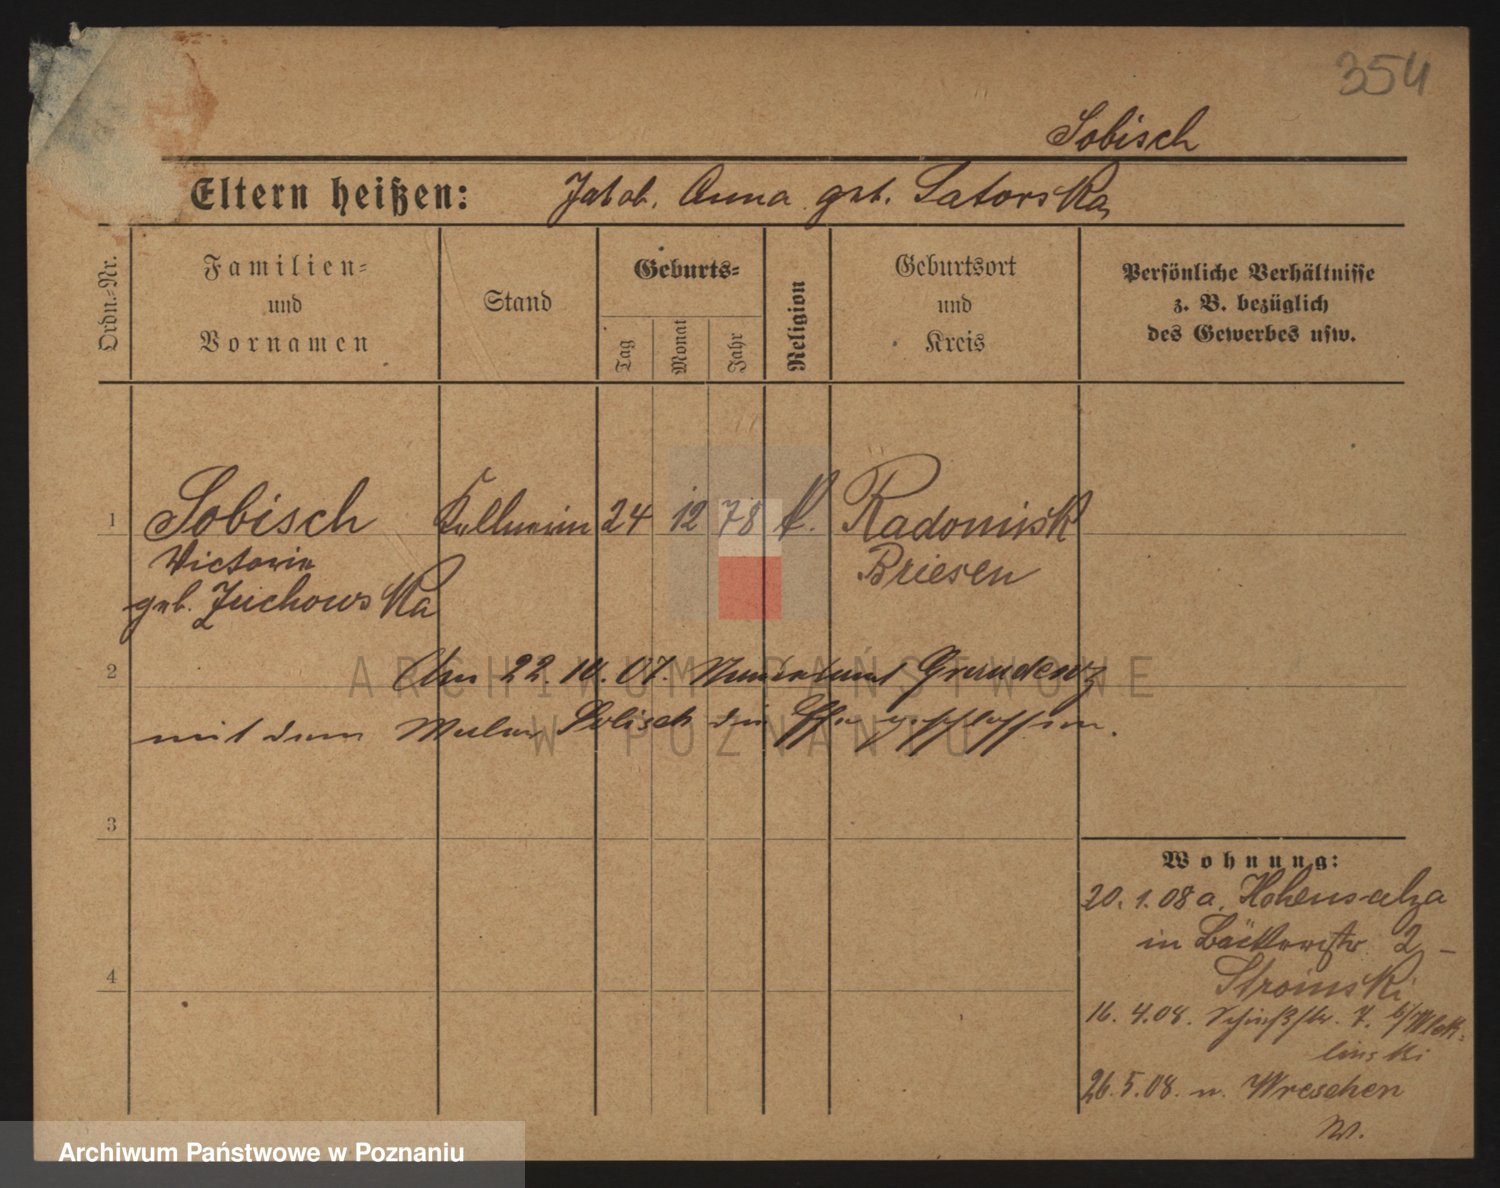 354
Sobisch
Eltern heißen: Jakob. Anna geb. Satorska
Ordn.-Nr.
Familien-
und
Vornamen
Stand
Geburts-
Tag
Monat
Jahr
Religion
Geburtsort
und
Kreis
Persönliche Verhältnisse
z. B. bezüglich
des Gewerbes usw.
1 Sobisch Kellnerin 24 12 78 k. Radominsk
Victoria Briesen
geb. Zuchowska
2 Am 22. 10. 07. Standesamt Graudenz
mit dem Maler Sobisch die Ehe geschlossen.
ARCHIWUM PAŃSTWOWE
W POZNANIU
3
4
Wohnung:
20. 1. 08 a. Hohensalza
in Bäckerstr 2 -
Stroinski
16. 4. 08. Schießstr. 7. b/
linski
26. 5. 08. n. Wreschen
W.
Archiwum Państwowe w Poznaniu